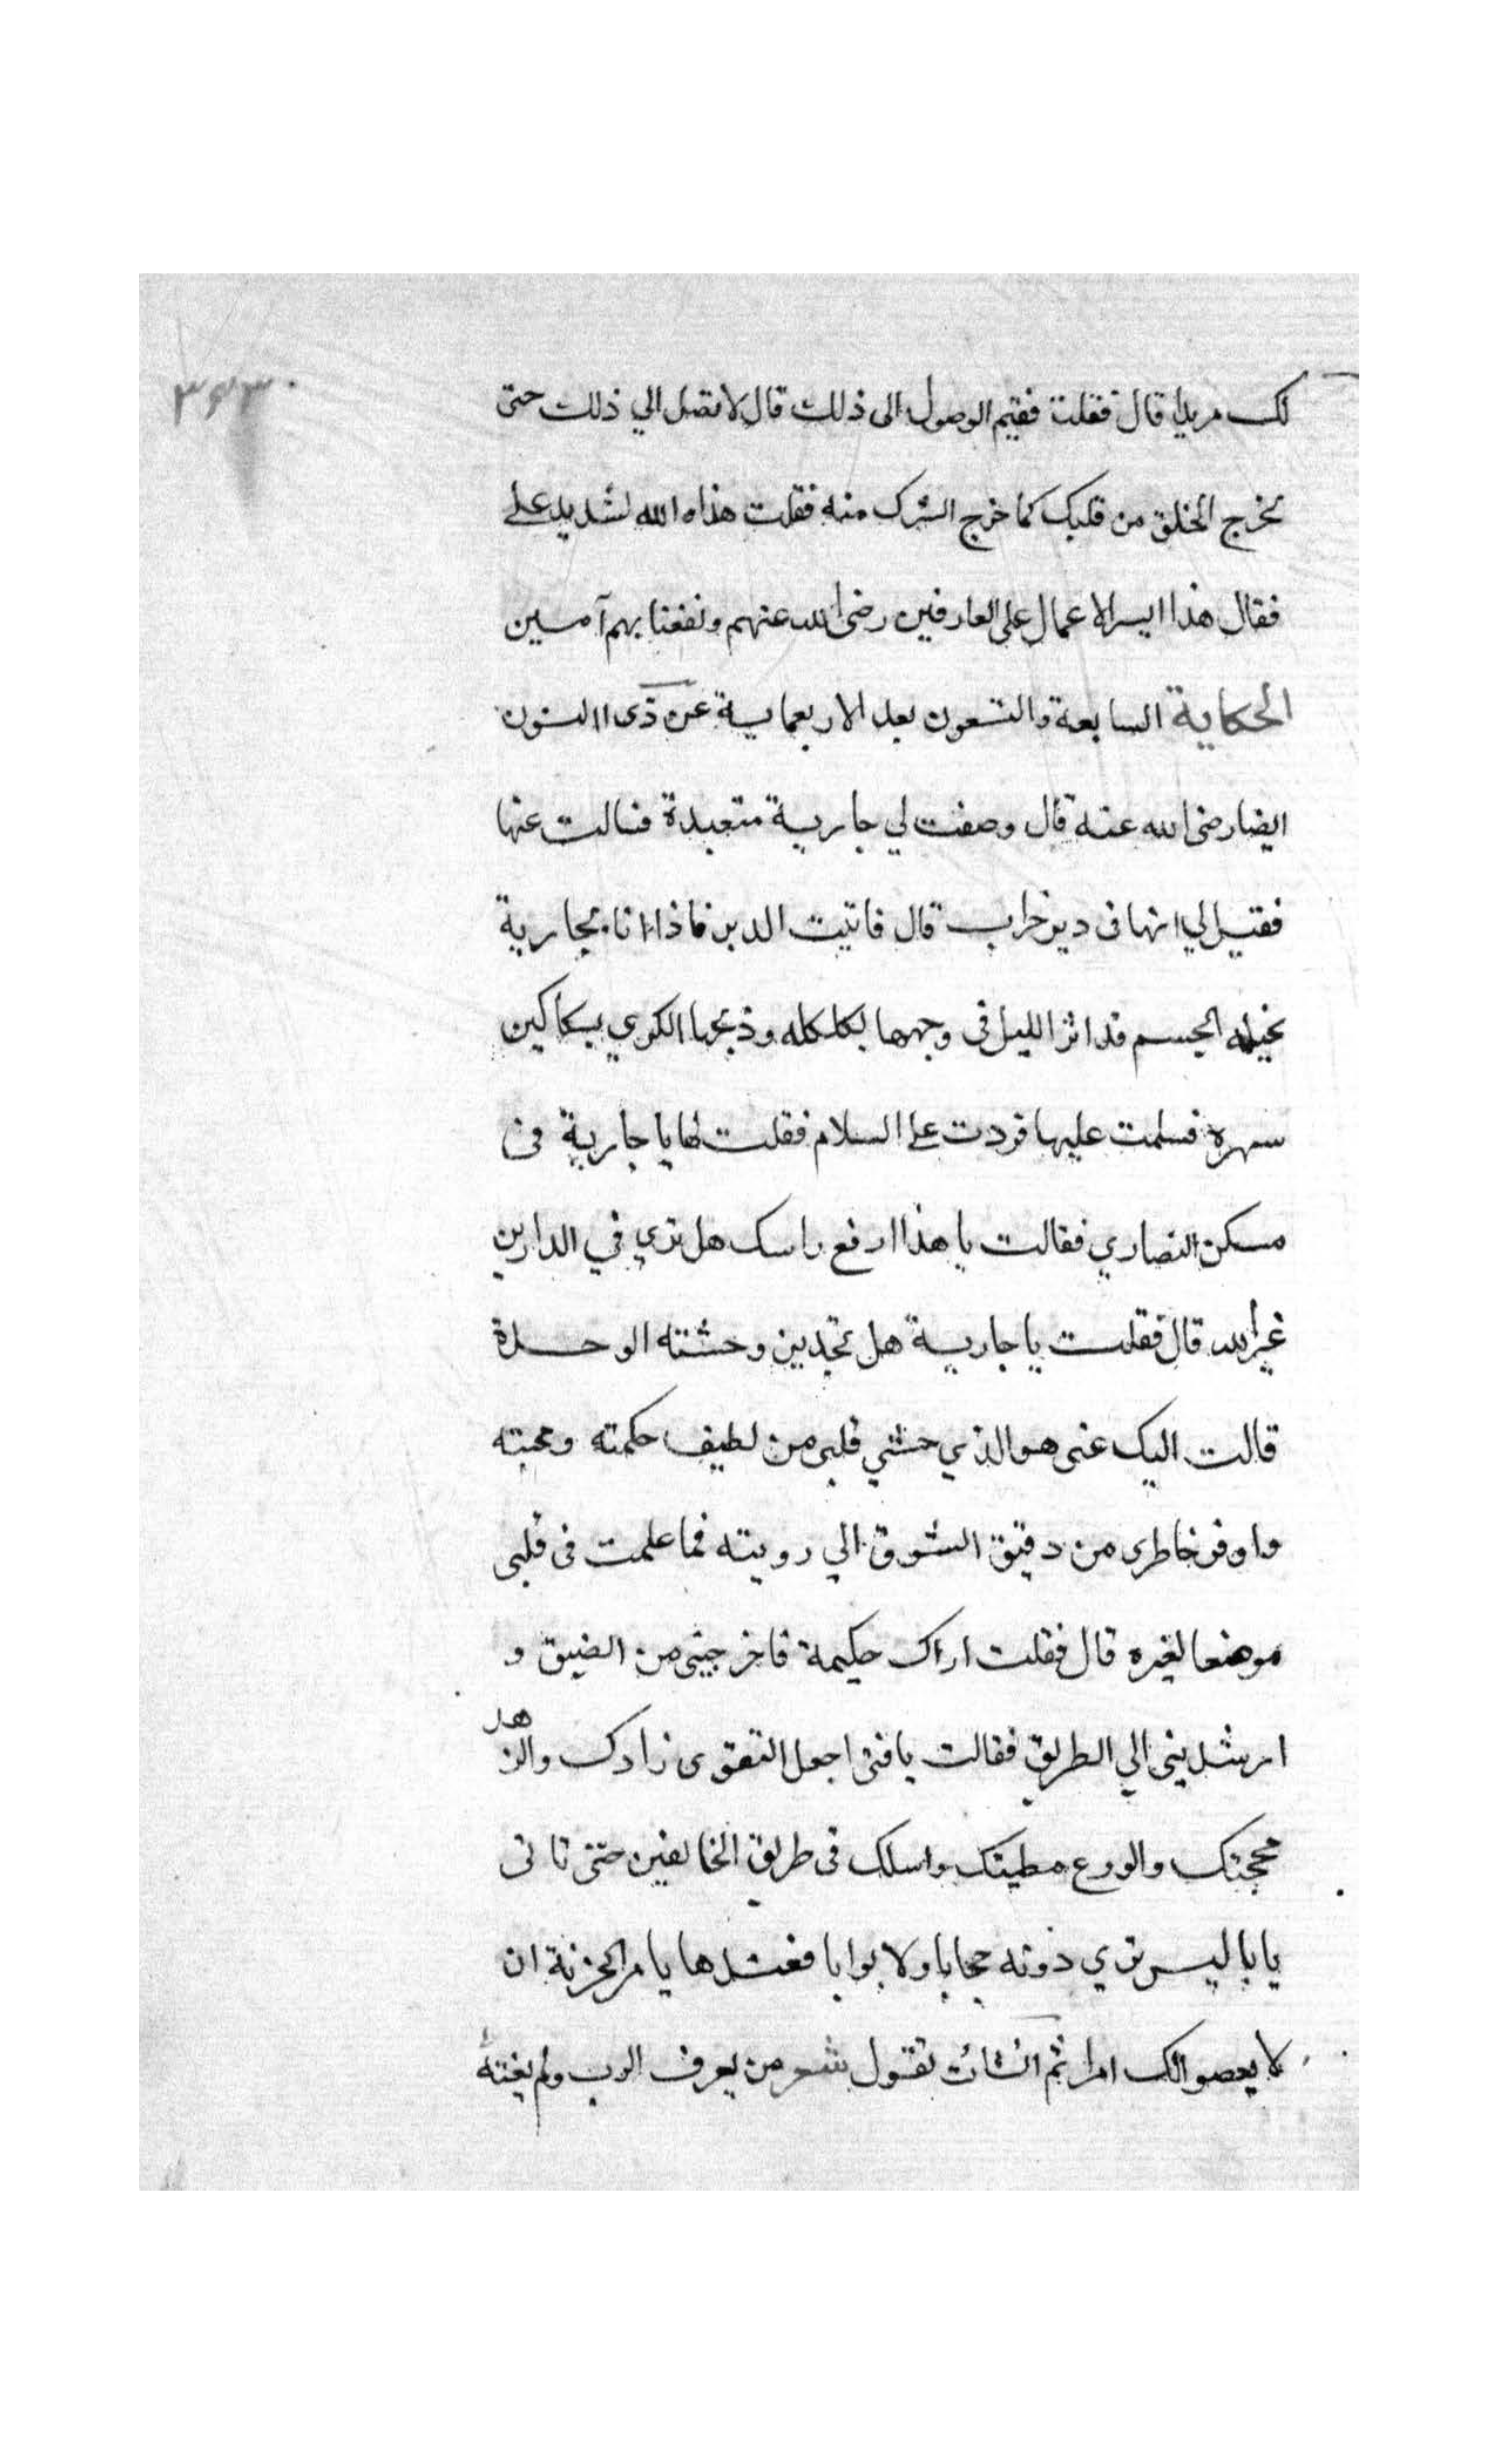 ٣٤٣
لك مريدا قال فقلت فقيم الوصول الى ذلك قال لا تصل الي ذلك حتى
تخرج الخلق من قلبك كما خرج الشرك منه فقلت هذا والله لشديد علي
فقال هذا ايسر الاعمال على العارفين رضى الله عنهم ونفعنا بهم آمين
الحكاية السابعة والتسعون بعد الاربعماية عن ذى النون
ايضا رضى الله عنه قال وصفت لي جارية متعبدة فسالت عنها
فقيل لي انها فى دير خراب قال فاتيت الدير فاذا انا بجارية
نحيله الجسم قد اثر الليل فى وجهها بكلكله وذبحها الكري بسكاكين
سهره فسلمت عليها فردت علي السلام فقلت لها يا جارية فى
مسكن النصاري فقالت يا هذا ارفع راسك هل تري في الدارين
غير الله قال فقلت يا جارية هل تجدين وحشته الوحدة
قالت اليك عنى هو الذي حشي قلبى من لطيف حكمته ومحبته
واوفر خاطرى من دقيق الشوق الي رويته فما علمت فى قلبى
موضعا لغيره قال فقلت اراك حكيمة فاخرجينى من الضيق و
ارشدينى الي الطريق فقالت يا فتى اجعل التقوى زادك والزهد
محجتك والورع مطيتك واسلك فى طريق الخايفين حتى تاتى
يابا ليس تري دونه حجابا ولا بوابا فعندها يامر الحزنة ان
لا يعصوا لك امرا ثم انشات تقول شعر من يعرف الرب ولم يغنه